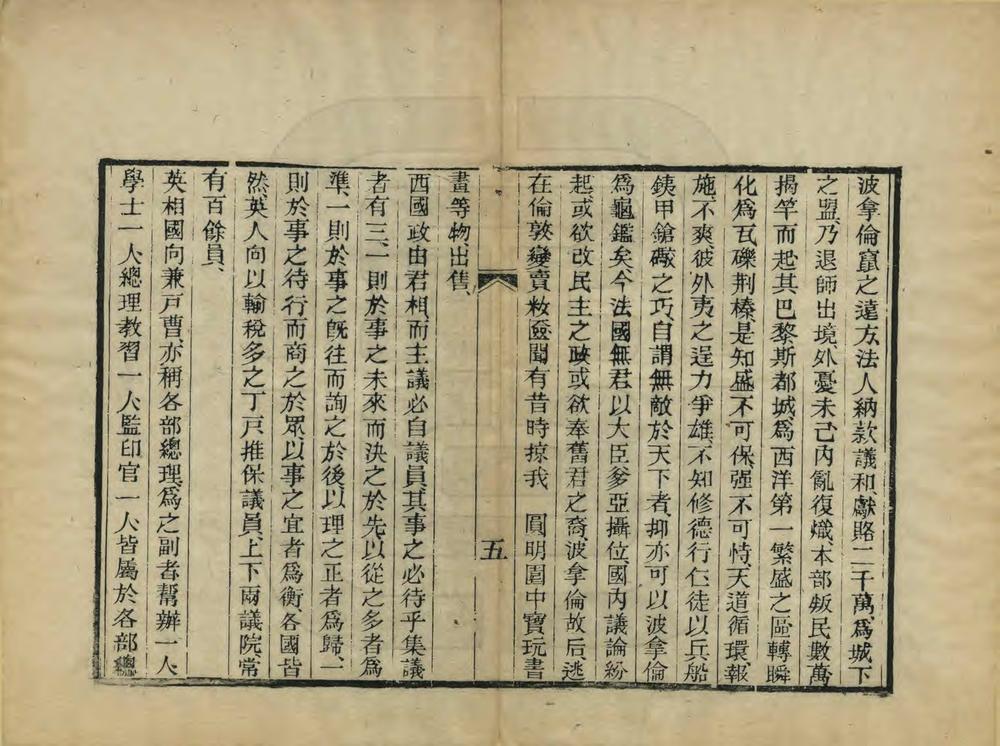 波拿倫竄之遠方、法人納款議和、獻賂二千萬、爲城下
之盟、乃退師出境、外憂未已、內亂復熾、本部叛民數萬
揭竿而起、其巴黎斯都城、爲西洋第一繁盛之區、轉瞬
化爲瓦礫荆榛、是知盛不可保、强不可恃、天道循環、報
施不爽、彼外夷之逞力爭雄、不知修德行仁、徒以兵船
銕甲鎗礮之巧、自謂無敵於天下者、抑亦可以波拿倫
爲龜鑑矣、今法國無君、以大臣爹亞攝位、國內議論紛
起、或欲改民主之政、或欲奉舊君之裔、波拿倫故后逃
在倫敦變賣粧匳、聞有昔時掠我 圓明園中寶玩書
五
畫等物、出售、
西國政由君相、而主議必自議員、其事之必待乎集議
者有三、一則於事之未來而決之於先、以從之多者爲
準、一則於事之旣往而詢之於後、以理之正者爲歸、一
則於事之待行而商之於眾、以事之宜者爲衡、各國皆
然、英人向以輸稅多之丁戸推保議員、上下兩議院常
有百餘員、
英相國向兼戸曹、亦稱各部總理、爲之副者、幫辦一人
學士一人、總理教習一人、監印官一人、皆屬於各部總